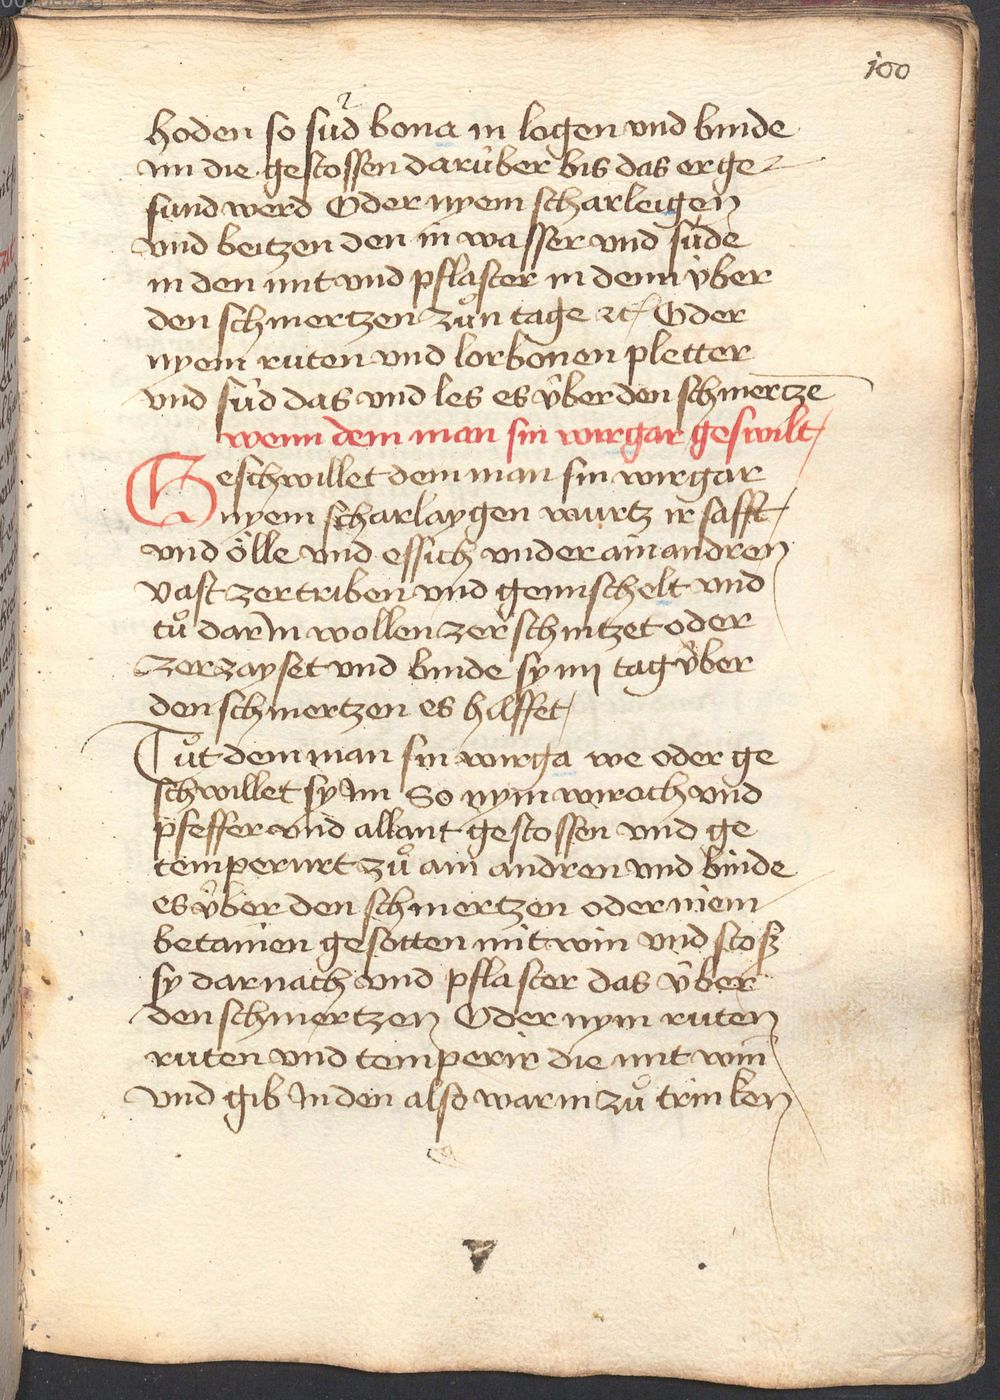 100
hoden so sùd bona in logen vnd binde
im die gestossen darùber bis das er ge
sund werd Oder nyem scharleigen
vnd beitzen den in wasser vnd sùde
in den mit vnd pflaster in denn ùber
den schmertzen zůn tage etc Oder
nyem ruten vnd lorbonen pletter
vnd sùd das vnd les es ùber den schmertzē
wenn dem man sin wurgar geswilt
Geschwillet dem man sin wurgar
nyem scharlaygen wurtz ir safft
vnd ölle vnd essich vnder ain andren
vast zertriben vnd gemischelt vnd
tů darin wollen zerschnitzet oder
zerzayset vnd binde sy iij tag ùber
den schmertzen es hilffet
Tůt dem man sin wurga we oder ge
schwillet sy Im So nym wiroch vnd
pfeffer vnd allant gestossen vnd ge
temperiert zů ain andren vnd binde
es ùber den schmertzen oder niem
betanien gesotten mit win vnd stosz
sy darnach vnd pflaster das ùber
den schmertzen Oder nym ruten
ruten vnd temperir die mit win
vnd gib Im den also warm zů trinken